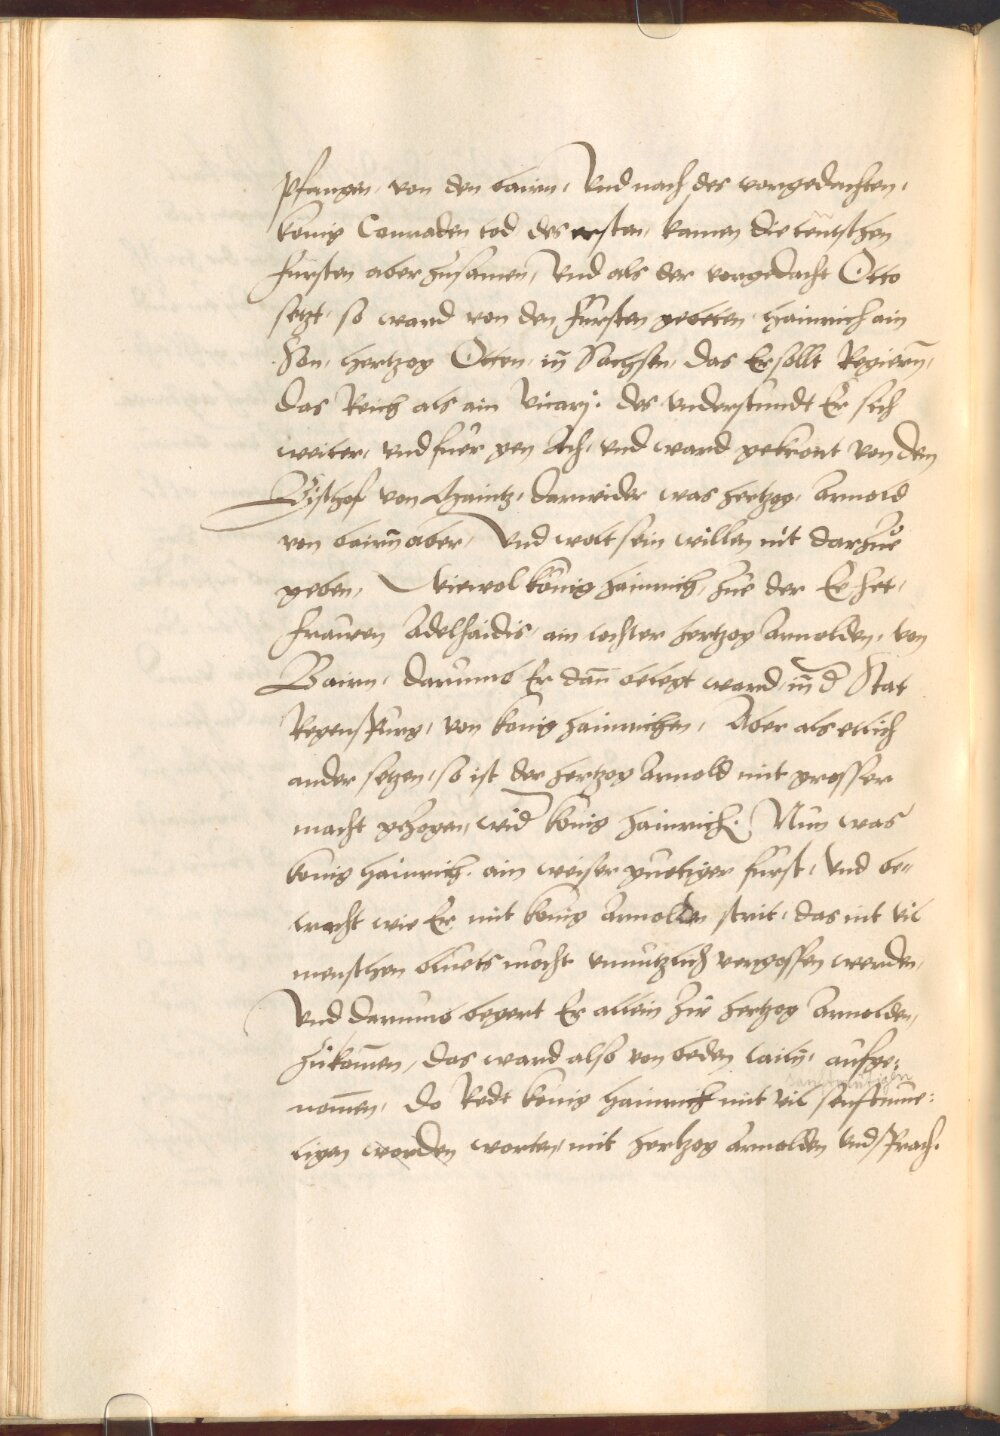 pfangen, von den bairn, Und nach des vorgedachten,
konig Conraden tod des ersten, kamen die teutschen
fürsten aber zusamen, Und als der vorgedacht Otto
setzt, so ward von den fürsten gebeten hainrich ain
Son, hertzog Otten, in Sachsen, das Er sollt Regiern,
das Reich als ain Vicarj. des understundt Er sich
weiter, und fuer gen Ach, und ward gekront von dem
Bischof von Maintz, darwider was hertzog, Arnold
von bairn aber, Und wolt sein willen nit darzue
geben, Wiewol konig hainrich, zue der Ee het,
frauen Adelhaidis, ain tochter hertzog Arnolden, von
Bairn, darumb Er dan belegt ward, in d Stat
Regenspurg, von konig hainrichen, Aber als etlich
ander setzen, so ist der hertzog Arnold mit grosser
macht gezogen, wid konig hainrich. Nun was
konig hainrich, ain weiser guetiger fürst, Und be-
tracht wie Er mit konig Arnolden strit, das nit vil
menschen bluets mocht unnutzlich vergossen werden,
Und darumb begert Er allein zu hertzog Arnolden,
zukomen, das ward also von beden tailn, aufge-
nomen, Do Redt konig hainrich mit vil senftmue-
tigen worden worten, mit hertzog Arnolden Und sprach.